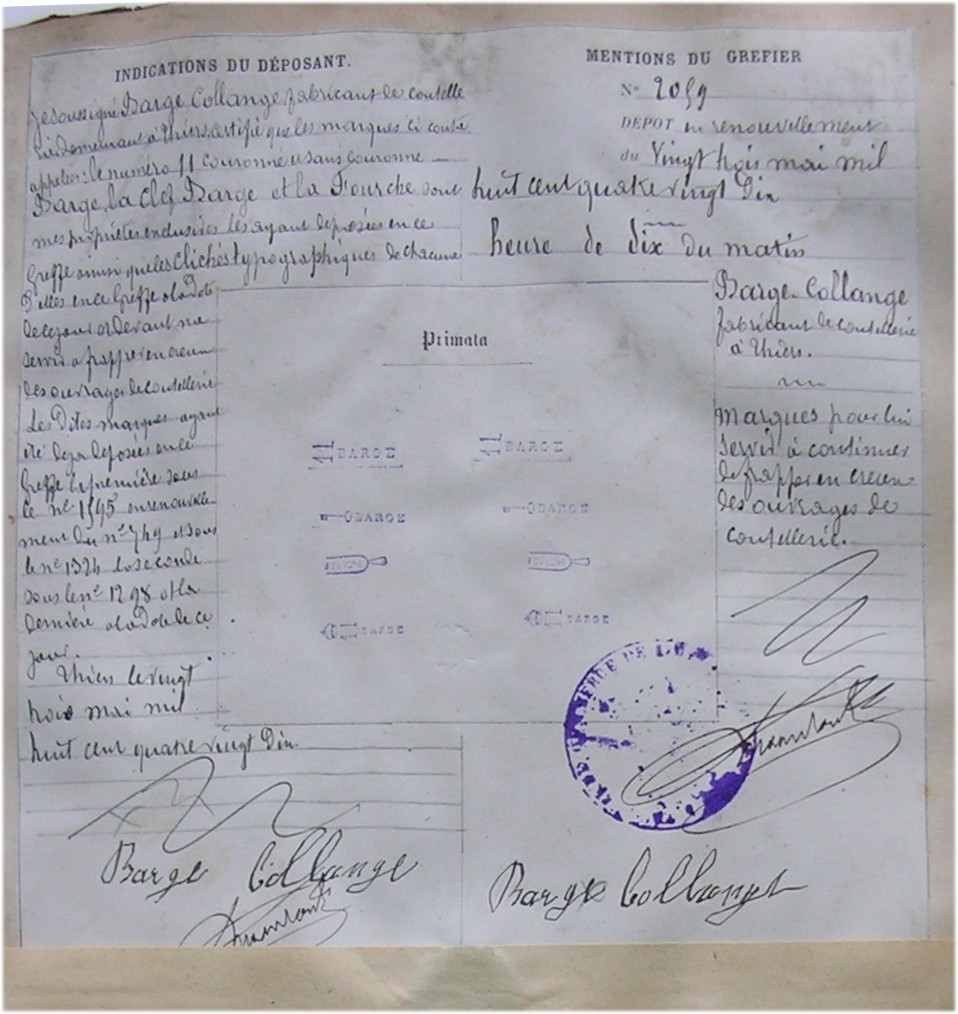 INDICATIONS DU DÉPOSANT.
Je soussigné Barge Collange fabricant de coutelle
rie demeurant à Thiers, certifie que les marques ci contre
appelées: le numéro 11 couronné et sans couronne
Barge, la Clef Barge et la Fourche sont
mes propriétés exclusives les ayant déposées en ce
Greffe ainsi que les clichés typographiques de chacune
d'elles en ce Greffe à la date
de ce jour et devant me
servir à frapper en creux
des ouvrages de coutellerie
Les dites marques ayant
été déjà déposées en ce
Greffe la première sous
le n° 1595 en renouvelle
ment du n° 749 et sous
le n° 1324 la seconde
sous le n° 1298 et la
dernière à la date de ce
jour.
Thiers le vingt
trois mai mil
huit cent quatre vingt dix
Barge Collange
MENTIONS DU GREFIER
N° 2059
DÉPOT en renouvellement
du Vingt trois mai mil
huit cent quatre vingt dix
heure de dix du matin
Barge-Collange
fabricant de coutellerie
à Thiers.
marques pour lui
servir à continuer
de frapper en creux
des ouvrages de
coutellerie.
Primata
11 BARGE 11 BARGE
BARGE BARGE
11 BARGE 11 BARGE
Barge Collange